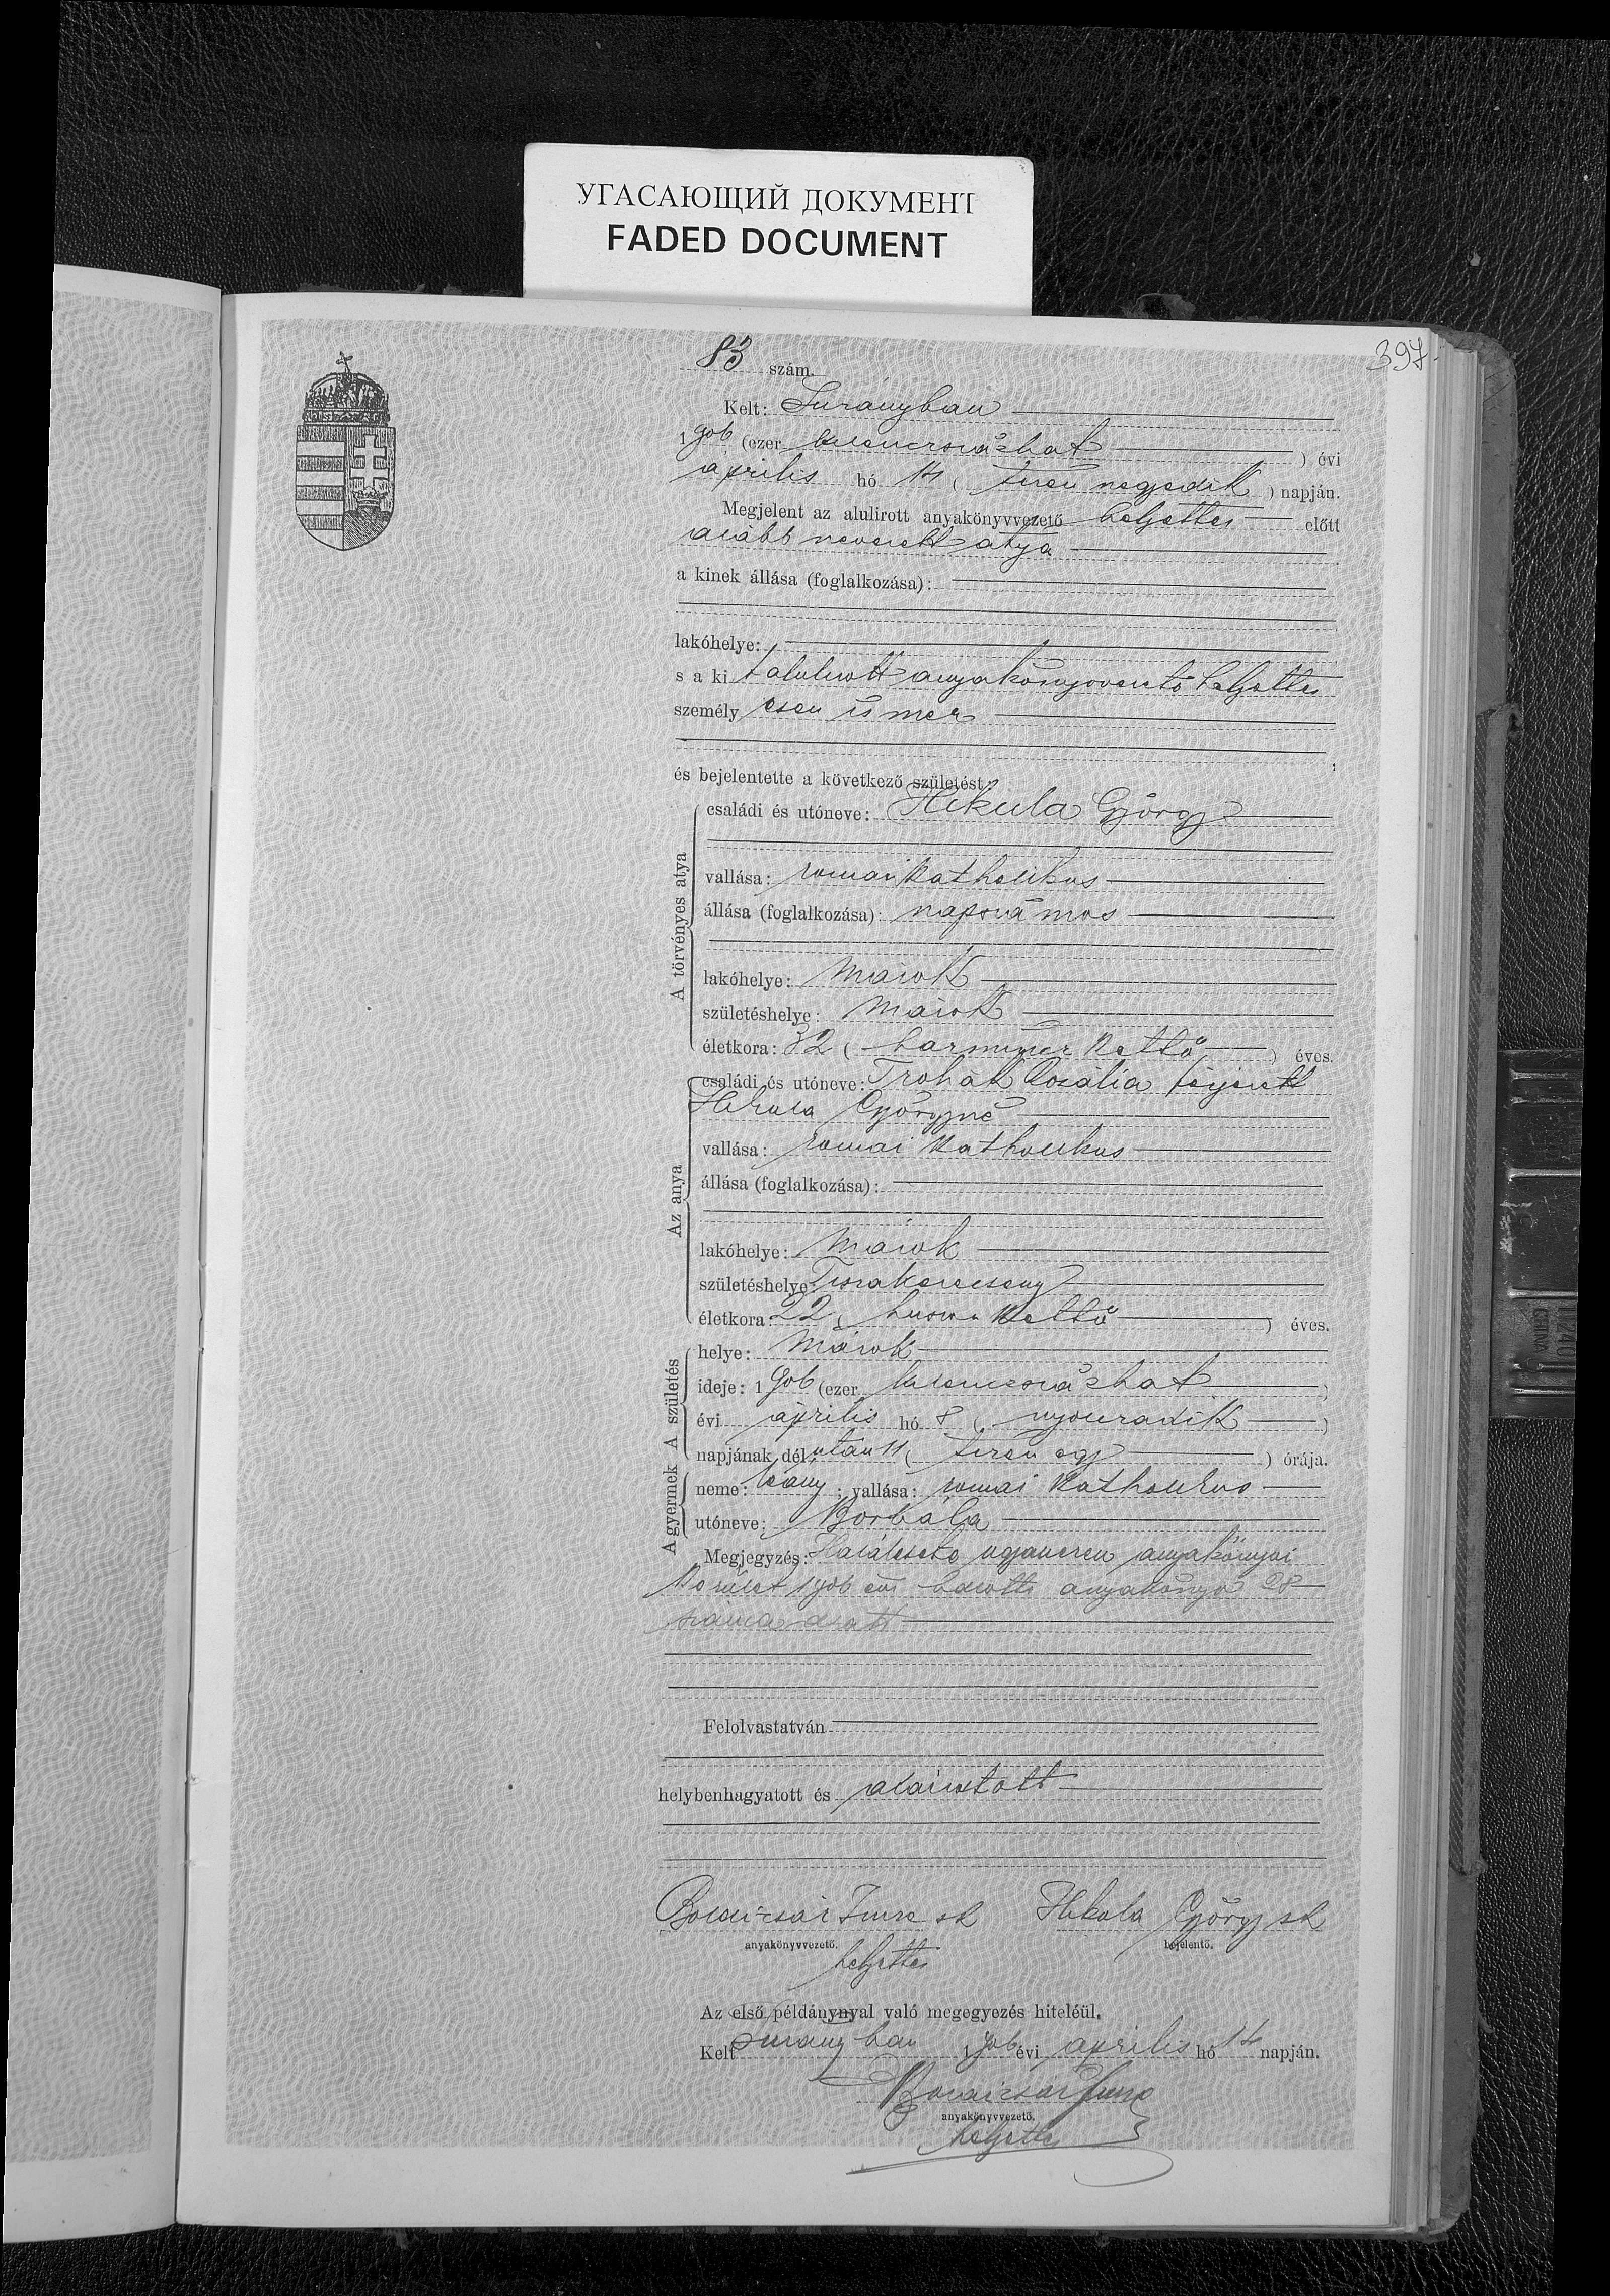 УГАСАЮЩИЙ ДОКУМЕНТ
FADED DOCUMENT
397
83 szám.
Kelt: Surányban
1906 (ezer kilenczszázhat) évi
április hó 14 (tizennegyedik) napján.
Megjelent az alulirott anyakönyvvezető helyettes előtt
alább nevezett atya
a kinek állása (foglalkozása):
lakóhelye:
s a kit alulirott anyakönyvvezető helyettes
személyesen ismer
és bejelentette a következő születést:
A törvényes atya
családi és utóneve: Hekula György
vallása: romai katholikus
állása (foglalkozása): napszámos
lakóhelye: Márok
születéshelye: Márok
életkora: 32 (harmincz kettő) éves.
Az anya
családi és utóneve: Trohák Rozália férjezett
Hekula Györgyné
vallása: romai katholikus
állása (foglalkozása):
lakóhelye: Márok
születéshelye: Tiszakerecseny
életkora: 22 (huszon kettő) éves.
A születés
helye: Márok
ideje: 1906 (ezer kilenczszázhat)
évi április hó 8 (nyolczadik)
napjának délután 11 (tizen egy) órája.
A gyermek
neme: leány; vallása: romai katholikus
utóneve: Borbála
Megjegyzés: Halálesete ugyanezen anyakönyvi
kerület 1906 évi halotti anyakönyv 28
száma alatt
Felolvastatván
helybenhagyatott és aláiratott
Imre sk Hekula György sk
anyakönyvvezető. bejelentő.
helyettes
Az első példánynyal való megegyezés hiteléül.
Kelt Surányban 1906 évi április hó 14 napján.
Imre
anyakönyvvezető.
helyettes